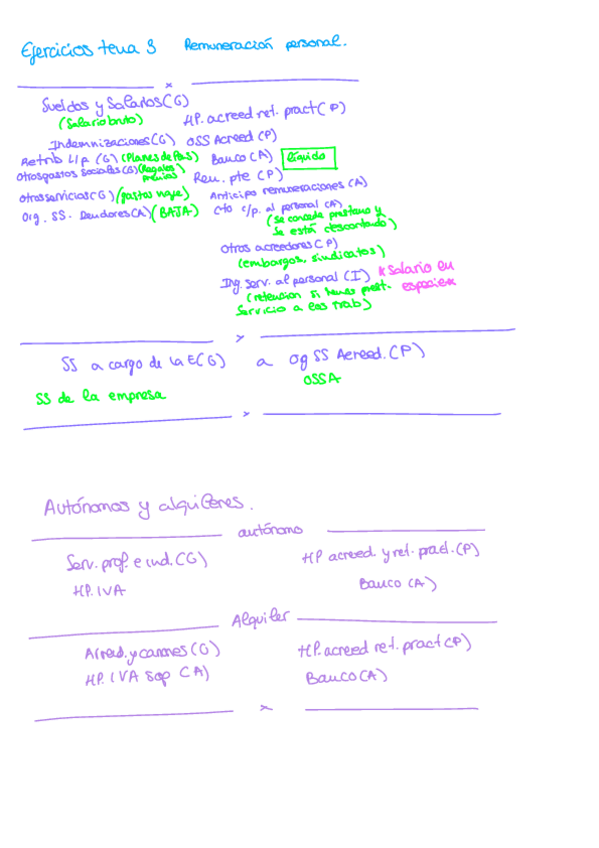 Ejercicios tema 3 Remuneración personal.
x
Sueldos y Salarios (G)
(Salario bruto)
HP. acreed ret. pract (P)
Indemnizaciones (G) OSS Acreed (P)
Retrib L/p (G) (Planes de Pens) Banco (A) líquido
Otros gastos Sociales (G) (Regalos, premios) Rem. pte (P)
Otros servicios (G) (gastos viaje) Anticipo remuneraciones (A)
Org. SS. Deudores (A) (BAJA) Cto c/p. al personal (A)
(Se concede prestamo y
se está descontado)
Otros acreedores (P)
(embargos, sindicatos)
Ing. serv. al personal (I) *Salario en
(retencion si tienes prest. especie*
Servicio a los trab)
x
SS a cargo de la E (G) a Og SS Acreed. (P)
OSSA
SS de la empresa
x
Autónomos y alquileres.
autónomo
Serv. prof. e ind. (G) HP acreed. y ret. pract. (P)
HP. IVA Banco (A)
Alquiler
Arrend. y canones (G) HP. acreed ret. pract (P)
HP. IVA Sop (A) Banco (A)
x